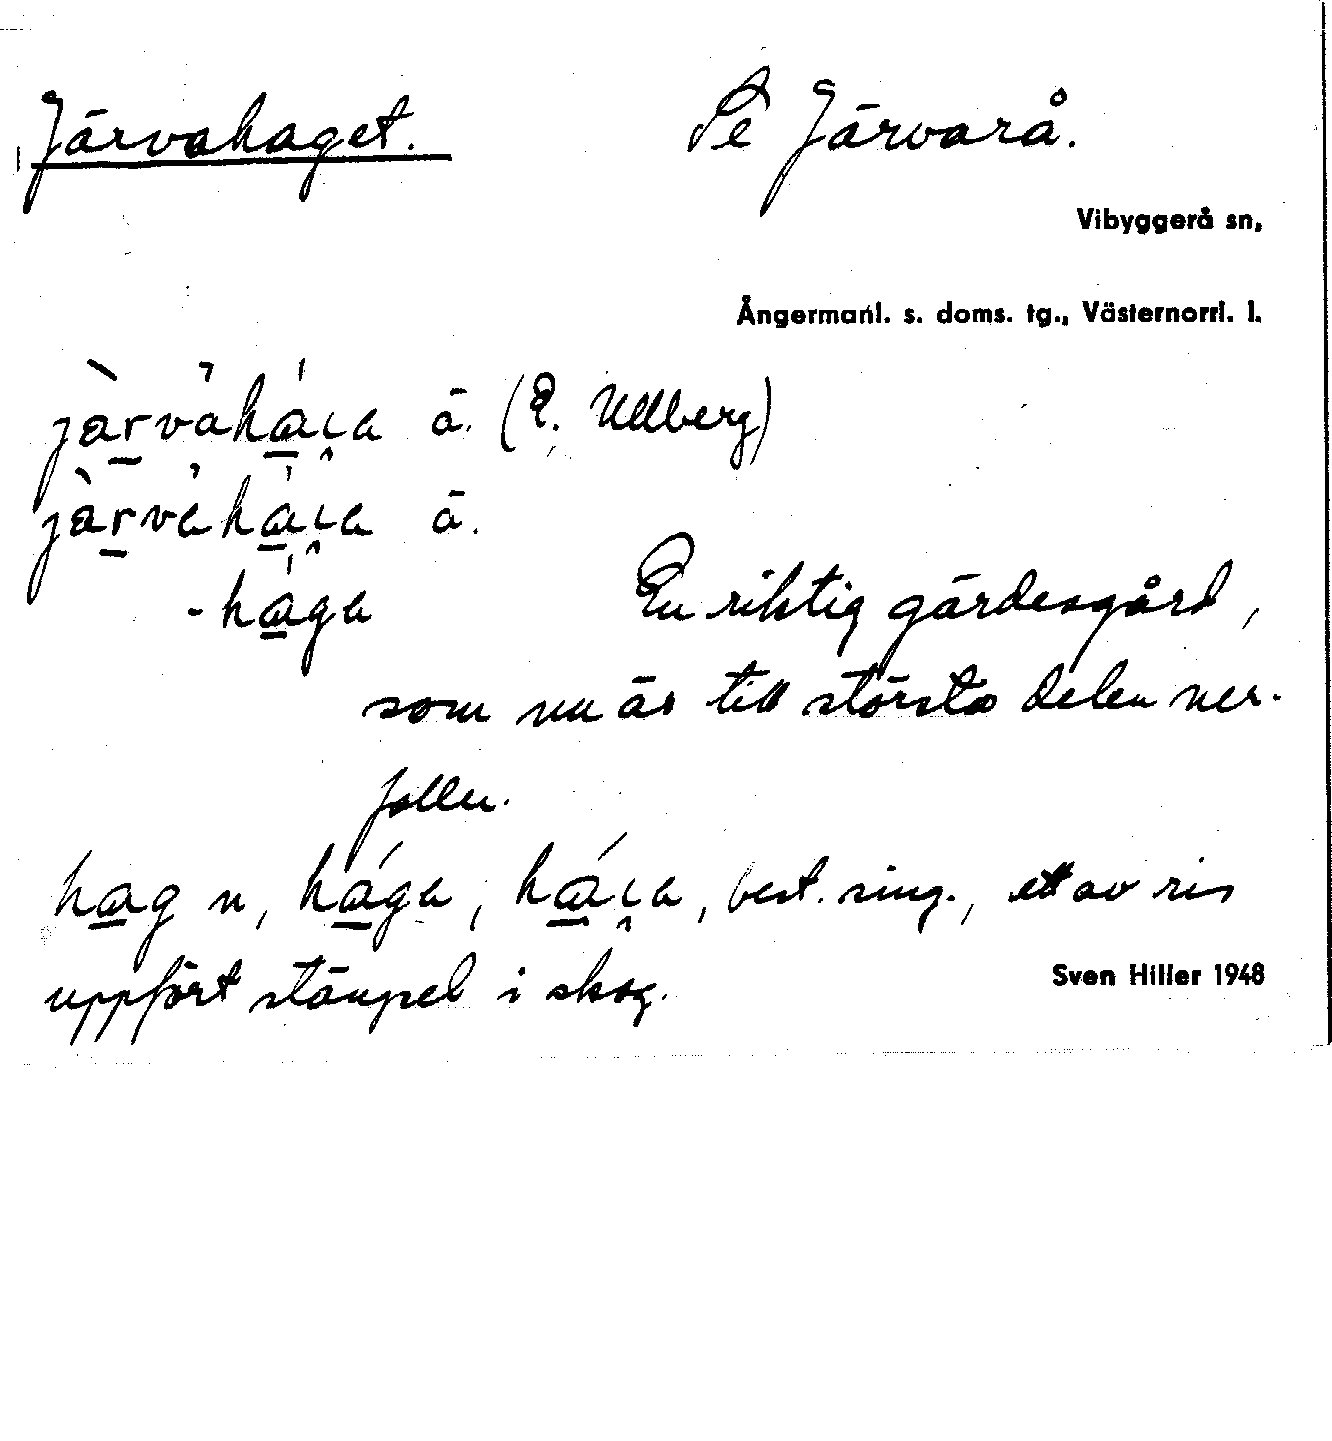 Järvahaget. Se Järvarå.
Vibyggerå sn,
Ångermanl. s. doms. tg., Västernorrl. l.
jàrvahá̱ɩ̯a ā. (E. Ullberg)
jàrvahá̱ɩ̯a ā.
-há̱ga En riktig gärdesgård,
som nu är till största delen ner-
fallen.
ha̱g n, há̱ga, há̱ɩ̯a, best. sing., ett av ris
uppfört stängsel i skog.
Sven Hiller 1948